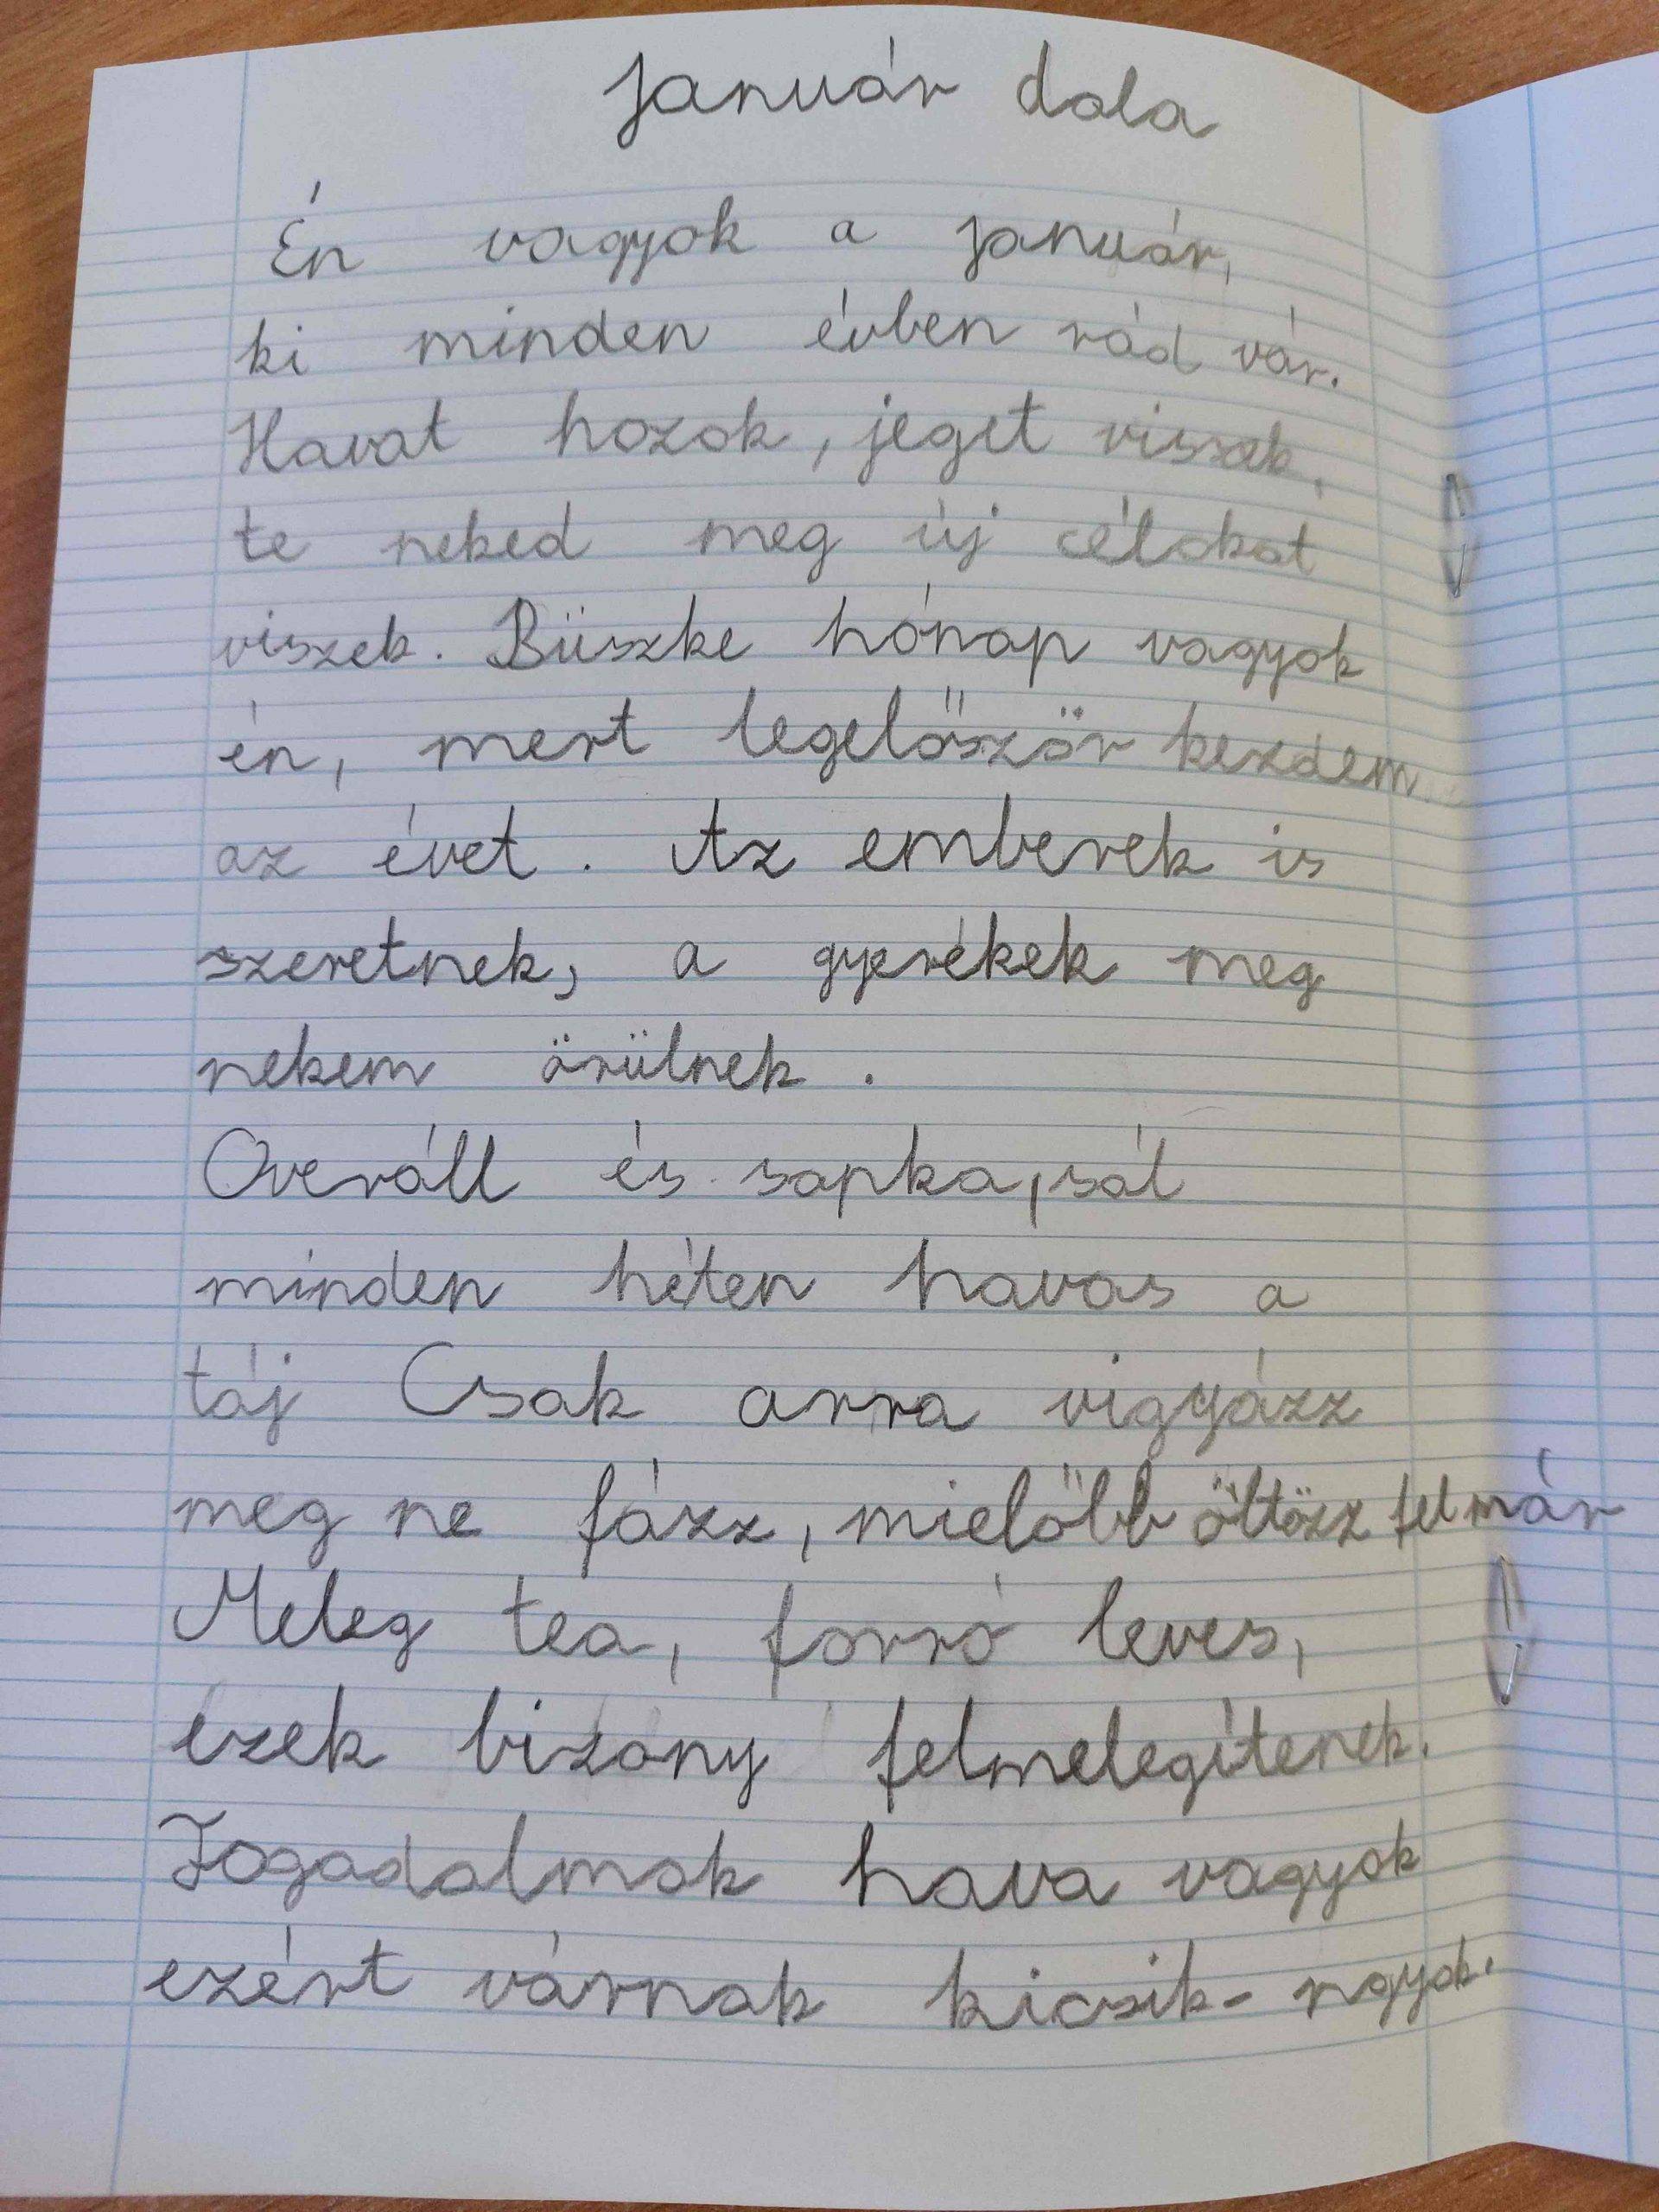 Január dala
Én vagyok a január,
ki minden évben rád vár.
Havat hozok, jeget viszek,
te neked meg új célokat
viszek. Büszke hónap vagyok
én, mert legelőször kezdem
az évet. Az emberek is
szeretnek, a gyerekek meg
nekem örülnek.
Overáll és sapka, sál
minden héten havas a
táj Csak arra vigyázz
meg ne fázz, mielőbb öltözz fel már
Meleg tea, forró leves,
ezek bizony felmelegítenek.
Fogadalmak hava vagyok
ezért várnak kicsik- ngyok.